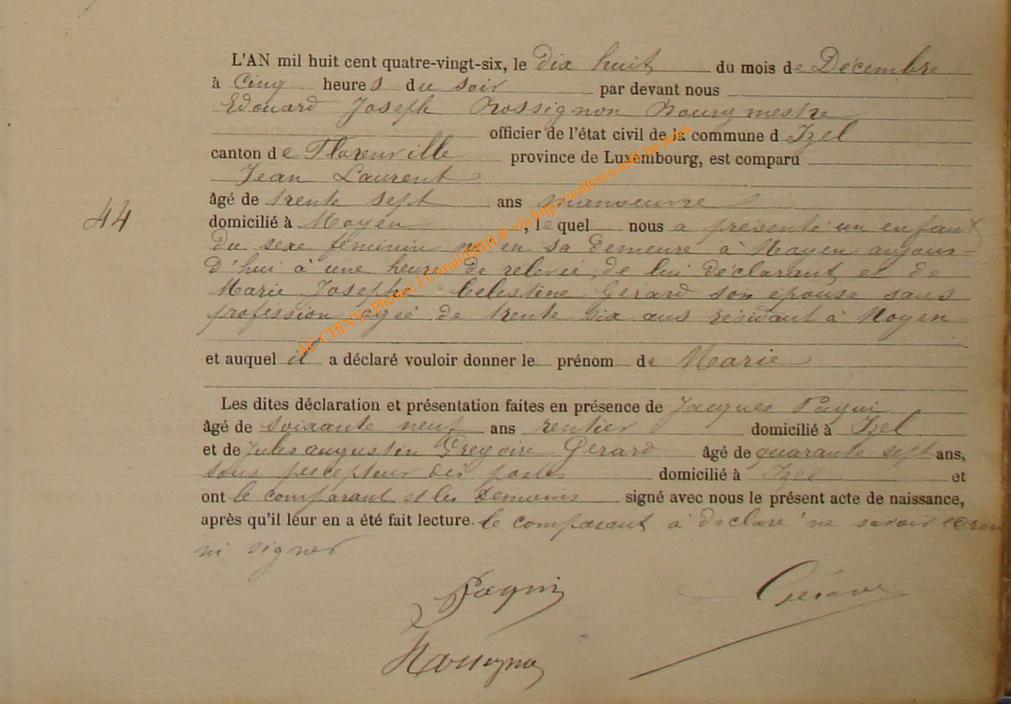 L'AN mil huit cent quatre-vingt-six, le dix huit du mois de Décembre
à Cinq heures du soir par devant nous
Edouard Joseph Rossignon Bourgmestre
officier de l'état civil de la commune d Izel
canton de Florenville province de Luxembourg, est comparu
Jean Laurent
âgé de trente sept ans manoeuvre
44
domicilié à Moyen, lequel nous a présenté un enfant
du sexe féminin né en sa demeure à Moyen aujour-
d'hui à une heure de relevée, de lui déclarant, et de
Marie Josephe Celestine Gerard son épouse sans
profession agée de trente six ans résidant à Moyen
et auquel il a déclaré vouloir donner le prénom de Marie
Les dites déclaration et présentation faites en présence de Jacques Paqui
âgé de soixante neuf ans rentier domicilié à Izel
et de Jules augustin Gregoire Gerard âgé de quarante sept ans,
sous percepteur des postes domicilié à Izel et
ont le comparant et les temoins signé avec nous le présent acte de naissance,
après qu'il leur en a été fait lecture. le comparant a déclaré ne savoir
ni signer
Paqui Gérard
Rossignon